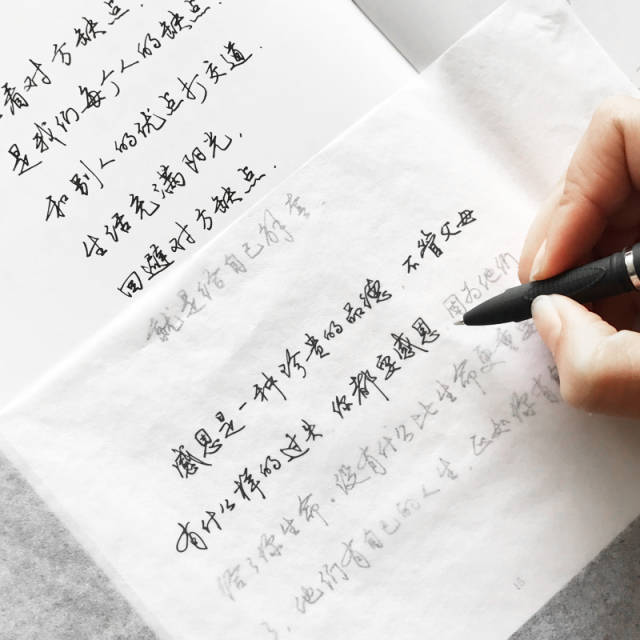 看对方缺点.
是我们每个人的缺点.
和别人的优点打交道.
生活充满阳光,
回避对方缺点.
就是给自己的
感恩是一种珍贵的品德.不管父母
有什么样的过失.你都要感恩.因为他们
给了你生命.没有什么比生命更重
了.他们有自己的人生.正如你有